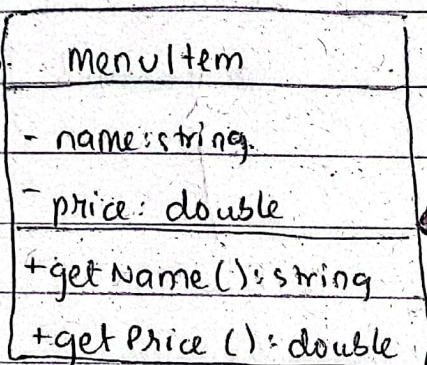 MenuItem
- name: string
- price: double
+ getName(): string
+ getPrice(): double